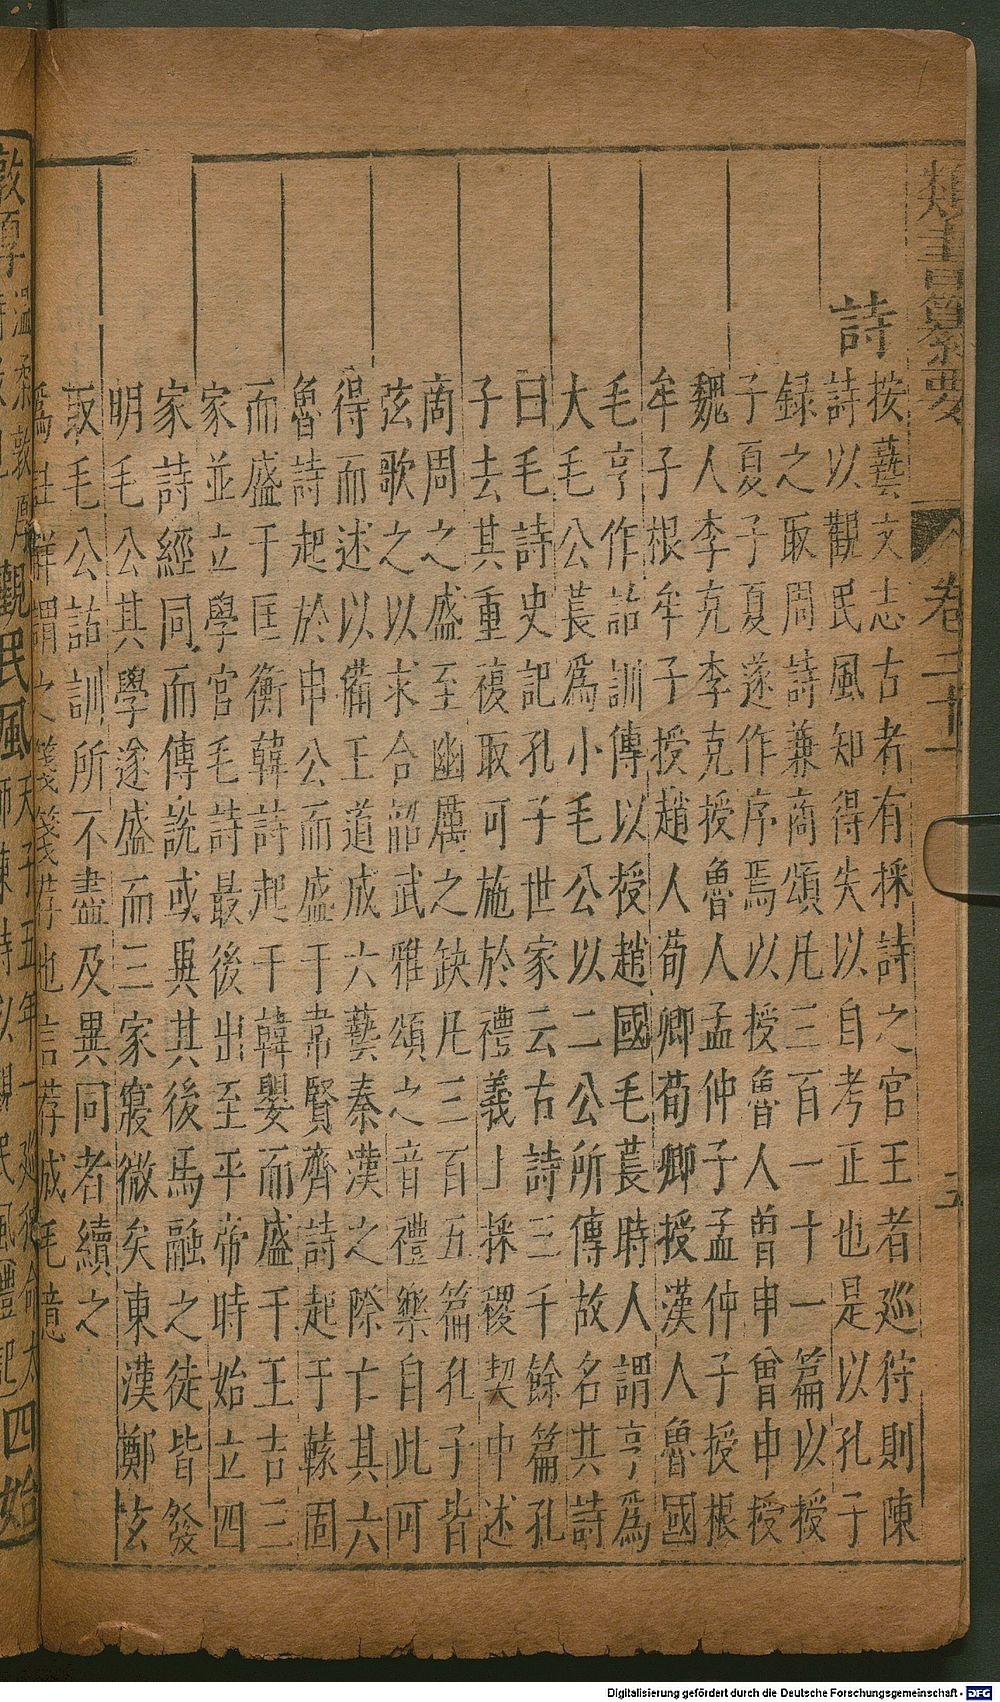 類書纂要
卷二十一
詩
按藝文志古者有採詩之官王者巡狩則陳
詩以觀民風知得失以自考正也是以孔子
録之取周詩兼商頌凡三百一十一篇以授
子夏子夏遂作序焉以授魯人曾申曾申授
魏人李克李克授魯人孟仲子孟仲子授根
牟子根牟子授趙人荀卿荀卿授漢人魯國
毛亨作詁訓傳以授趙國毛萇時人謂亨爲
大毛公萇爲小毛公以二公所傳故名其詩
曰毛詩史記孔子世家云古詩三千餘篇孔
子去其重複取可施於禮義上採稷契中述
商周之盛至幽厲之缺凡三百五篇孔子皆
弦歌之以求合韶武雅頌之音禮樂自此可
得而述以備王道成六藝秦漢之際亡其六
魯詩起於申公而盛于韋賢齊詩起于轅固
而盛于匡衡韓詩起于韓嬰而盛于王吉三
家並立學官毛詩最後出至平帝時始立四
家詩經同而傳說或異其後馬融之徒皆發
明毛公其學遂盛而三家寢微矣東漢鄭玄
取毛公詁訓所不盡及異同者續之
爲註解謂之箋箋荐也言荐成毛意
敦厚
溫柔敦厚
觀民風
天子五年一巡狩命太
師陳詩以觀民風禮記
四始
Digitalisierung gefördert durch die Deutsche Forschungsgemeinschaft - DFG